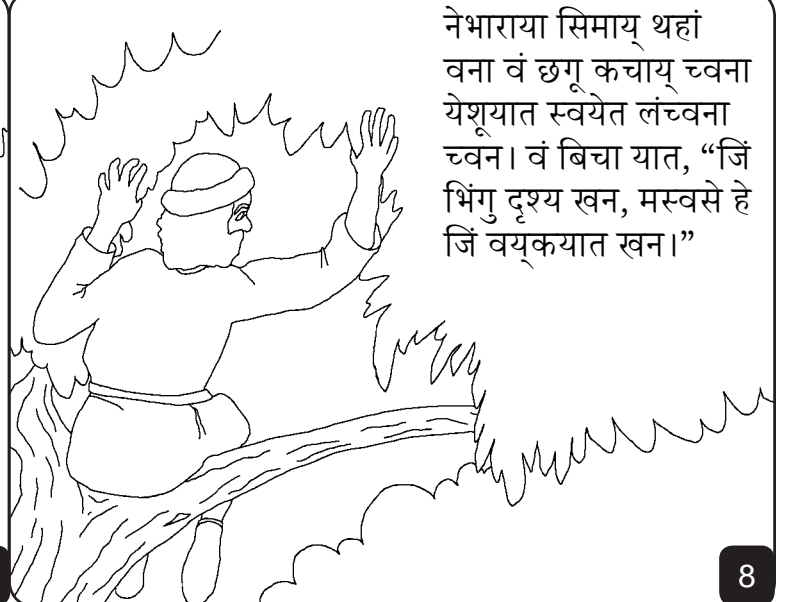 नेभाराया सिमाय् थहां
वना वं छगू कचाय् च्वना
येशूयात स्वयेत लंच्वना
च्वन। वं बिचा यात, “जिं
भिंगु दृश्य खन, मस्वसे हे
जिं वय्‌कयात खन।”
8